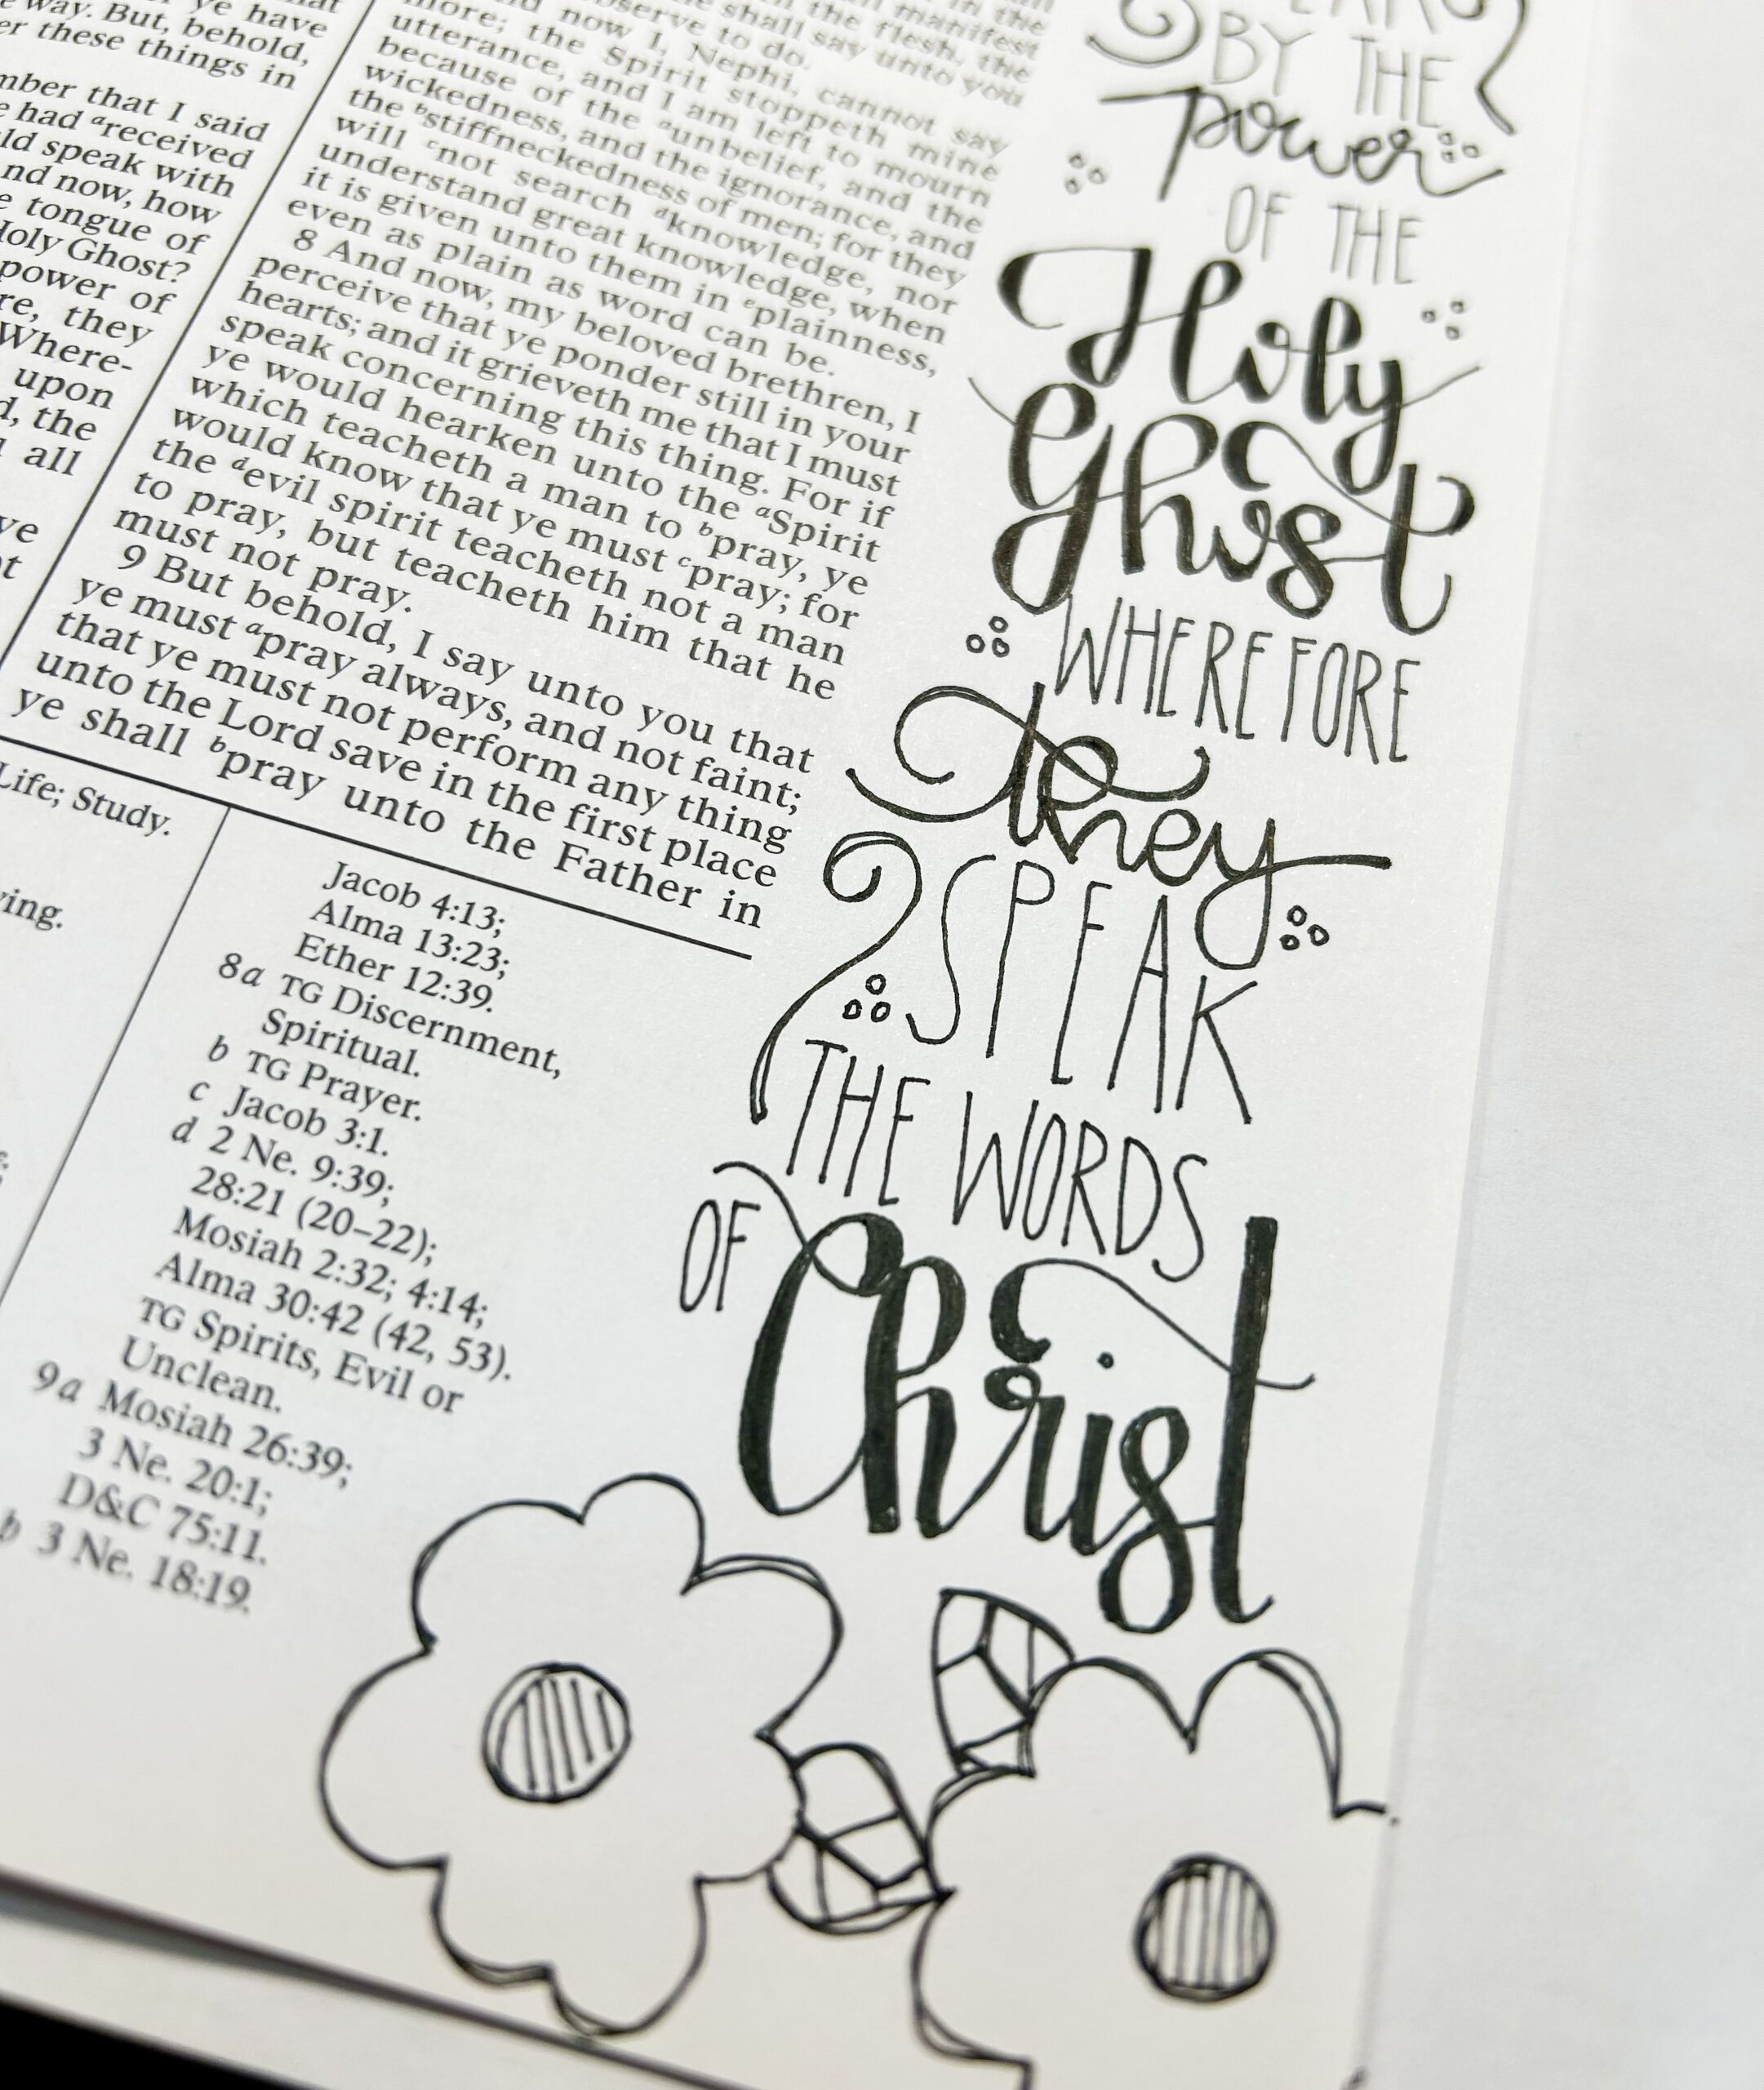 ye have
way. But, behold,
these things in
that I said
had ᵃreceived
speak with
now, how
tongue of
Holy Ghost?
power of
they
Where-
upon
the
all
more; the Spirit stoppeth mine
utterance, and I am left to mourn
because of the ᵃunbelief, and the
wickedness, and the ignorance, and
the ᵇstiffneckedness of men; for they
will ᶜnot search ᵈknowledge, nor
understand great knowledge, when
it is given unto them in ᵉplainness,
even as plain as word can be.
8 And now, my beloved brethren, I
perceive that ye ponder still in your
hearts; and it grieveth me that I must
speak concerning this thing. For if
ye would hearken unto the ᵃSpirit
which teacheth a man to ᵇpray, ye
would know that ye must ᶜpray; for
the ᵈevil spirit teacheth not a man
to pray, but teacheth him that he
must not pray.
9 But behold, I say unto you that
ye must ᵃpray always, and not faint;
that ye must not perform any thing
unto the Lord save in the first place
ye shall ᵇpray unto the Father in
Life; Study.
Jacob 4:13;
Alma 13:23;
Ether 12:39.
8a TG Discernment,
Spiritual.
b TG Prayer.
c Jacob 3:1.
d 2 Ne. 9:39;
28:21 (20–22);
Mosiah 2:32; 4:14;
Alma 30:42 (42, 53).
TG Spirits, Evil or
Unclean.
9a Mosiah 26:39;
3 Ne. 20:1;
D&C 75:11.
b 3 Ne. 18:19.
BY THE
power
OF THE
Holy
Ghost
WHEREFORE
they
SPEAK
THE WORDS
OF Christ